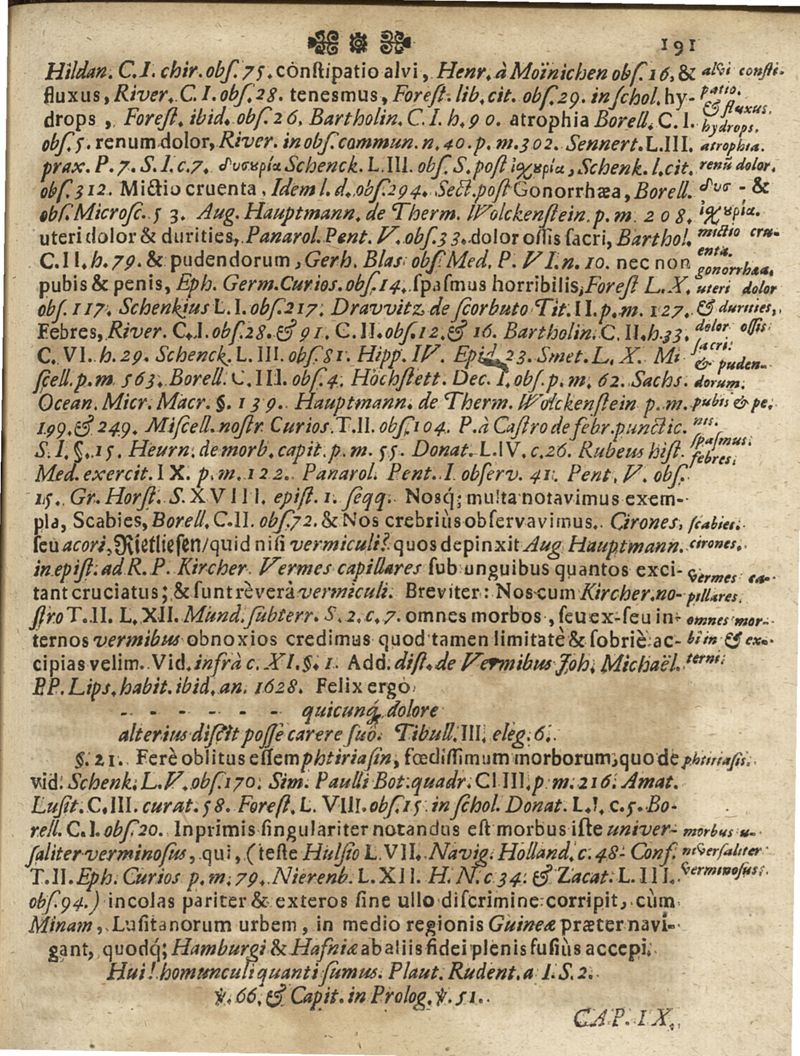 191
Hildan. C. I. chir. obſ. 75. conſtipatio alvi, Henr. à Moïnichen obſ. 16. & alvi conſti-
fluxus, River. C. I. obſ. 28. tenesmus, Foreſt. lib. cit. obſ. 29. in ſchol. hy- patio. & fluxus.
drops, Foreſt. ibid. obſ. 26. Bartholin. C. I. h. 90. atrophia Borell. C. I. hydrops.
obſ. 5. renum dolor, River. in obſ. commun. n. 40. p. m. 302. Sennert. L. III. atrophia.
prax. P. 7. S. I. c. 7. δυσουρία Schenck. L. III. obſ. S. poſt ἰσχουρία, Schenk. l. cit. renũ dolor.
obſ. 312. Mictio cruenta, Idem l. d. obſ. 294. Sect. poſt Gonorrhæa, Borell. δυσ - &
obſ. Microſc. 53. Aug. Hauptmann. de Therm. Wolckenſtein. p. m. 208. ἰσχουρία.
uteri dolor & durities, Panarol. Pent. V. obſ. 33. dolor oſſis ſacri, Barthol. mictio cru-
C. II. h. 79. & pudendorum, Gerh. Blas obſ. Med. P. VI. n. 10. nec non enta. gonorrhæa.
pubis & penis, Eph. Germ. Curios. obſ. 14. ſpaſmus horribilis, Foreſt L. X. uteri dolor
obſ. 117. Schenkius L. I. obſ. 217. Dravvitz. de ſcorbuto Tit. II. p. m. 127. & durities,
Febres, River. C. I. obſ. 28. & 91. C. II. obſ. 12. & 16. Bartholin. C. II. h. 33. dolor oſſis
C. VI. h. 29. Schenck. L. III. obſ. 81. Hipp. IV. Epid. 23. Smet. L. X. Mi ſacri. & puden-
ſcell. p. m. 563. Borell. C. III. obſ. 4. Höchſtett. Dec. I. obſ. p. m. 62. Sachs. dorum.
Ocean. Micr. Macr. §. 139. Hauptmann. de Therm. Wolckenſtein p. m. pubis & pe.
199. & 249. Miſcell. noſtr. Curios. T. II. obſ. 104. P. à Caſtro de febr. punctic. nis.
S. I. §. 15. Heurn. de morb. capit. p. m. 55. Donat. L. IV. c. 26. Rubeus hiſt. ſpaſmus. febres.
Med. exercit. IX. p. m. 122. Panarol. Pent. I observ. 41. Pent. V. obſ.
15. Gr. Horſt. S. XVIII. epiſt. 1. ſeqq. Nosq; multa notavimus exem-
pla, Scabies, Borell. C. II. obſ. 72. & Nos crebriùs obſervavimus. Cirones, ſcabies.
ſeu acori, Rietlieſen/ quid niſi vermiculi? quos depinxit Aug Hauptmann. cirones.
in epiſt. ad R. P. Kircher. Vermes capillares ſub unguibus quantos exci- Vermes ca-
tant cruciatus; & ſunt rèverà vermiculi. Breviter: Nos cum Kircher. no- pillares.
ſtro T. II. L. XII. Mund. ſubterr. S. 2. c. 7. omnes morbos, ſeu ex-ſeu in- omnes mor-
ternos vermibus obnoxios credimus quod tamen limitatè & ſobriè ac- bi in & ex-
cipias velim. Vid. infrà c. XI. §. 1. Add. diſt. de Vermibus Joh. Michaël. terni.
PP. Lips. habit. ibid. an. 1628. Felix ergò
- - - - - - quicunq; dolore
alterius diſcit poſſe carere ſuo. Tibull. III. eleg. 6.
§. 21. Ferè oblitus eſſem phtiriaſin, fœdiſſimum morborum, quo de phtiriaſis.
vid. Schenk. L. V. obſ. 170. Sim. Paulli Bot. quadr. Cl III. p m. 216. Amat.
Luſit. C. III. curat. 58. Foreſt. L. VIII. obſ. 15 in ſchol. Donat. L. I. c. 5. Bo-
rell. C. I. obſ. 20. Inprimis ſingulariter notandus eſt morbus iſte univer- morbus u-
ſaliter verminoſus, qui, (teſte Hulſio L. VII. Navig. Holland. c. 48. Conf. niverſaliter
T. II. Eph. Curios p. m. 79. Nierenb. L. XII. H. N. c 34. & Zacat. L. III. verminoſus.
obſ. 94.) incolas pariter & exteros ſine ullo diſcrimine corripit, cùm
Minam, Luſitanorum urbem, in medio regionis Guineæ præter navi-
gant, quodq; Hamburgi & Hafniæ ab aliis fidei plenis fuſiùs accepi.
Hui! homunculi quanti ſumus. Plaut. Rudent. a 1. S. 2.
℣. 66. & Capit. in Prolog. ℣. 51.
CAP. IX.